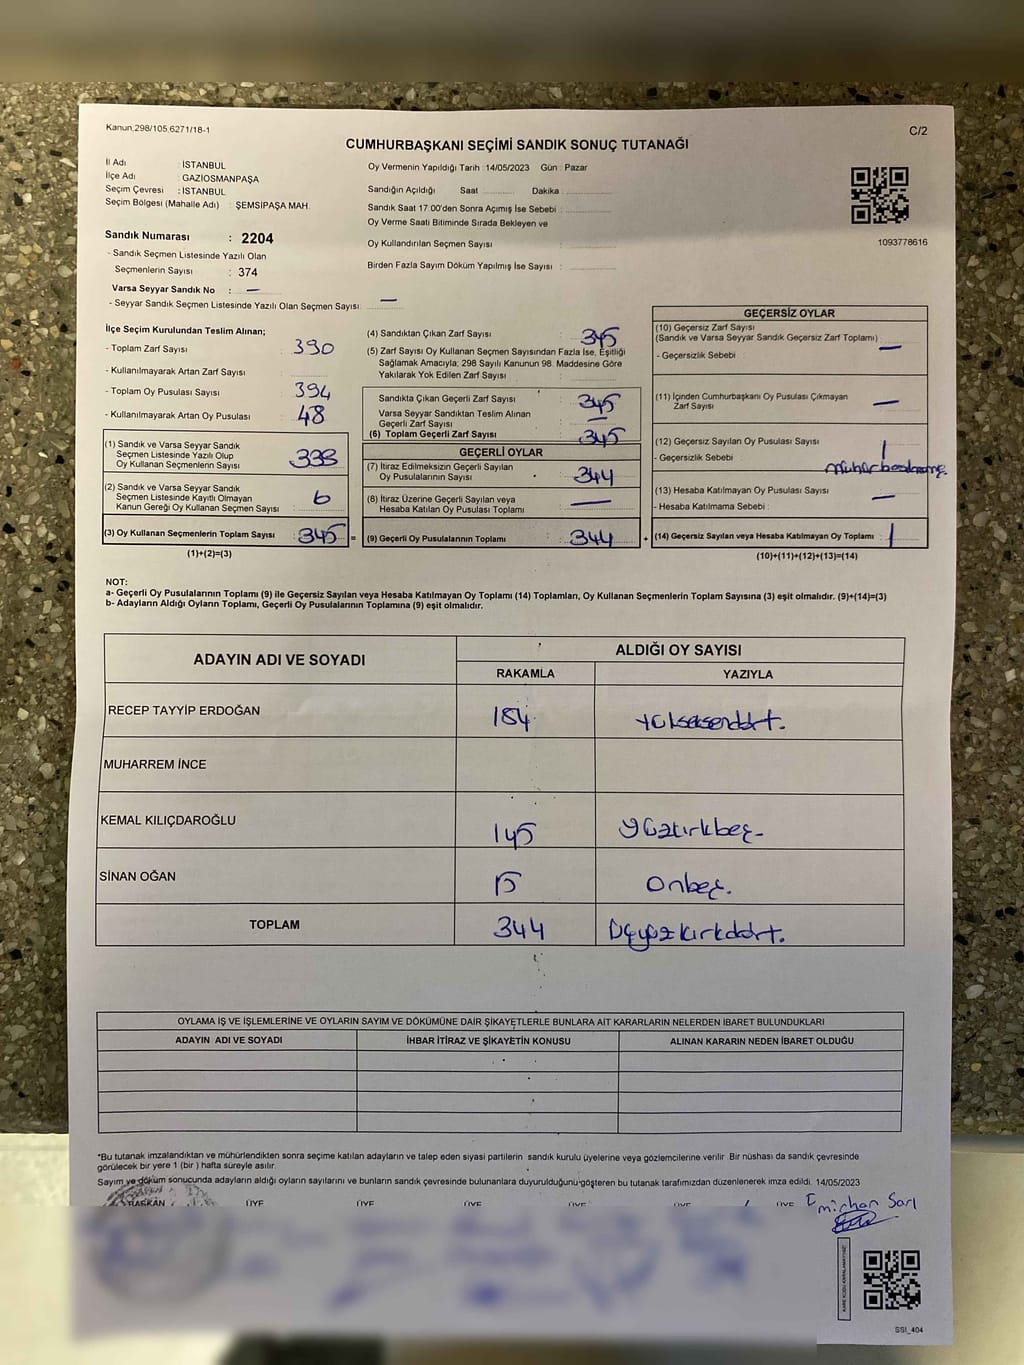 Kanun;298/105,6271/18-1
C/2
CUMHURBAŞKANI SEÇİMİ SANDIK SONUÇ TUTANAĞI
İl Adı : İSTANBUL
İlçe Adı : GAZİOSMANPAŞA
Seçim Çevresi : İSTANBUL
Seçim Bölgesi (Mahalle Adı) : ŞEMSİPAŞA MAH.
Oy Vermenin Yapıldığı Tarih :14/05/2023 Gün : Pazar
Sandığın Açıldığı Saat Dakika
Sandık Saat 17:00'den Sonra Açımış İse Sebebi :
Oy Verme Saati Bitiminde Sırada Bekleyen ve
Oy Kullandırılan Seçmen Sayısı :
Birden Fazla Sayım Döküm Yapılmış İse Sayısı :
1093778616
Sandık Numarası : 2204
- Sandık Seçmen Listesinde Yazılı Olan
Seçmenlerin Sayısı : 374
Varsa Seyyar Sandık No : —
- Seyyar Sandık Seçmen Listesinde Yazılı Olan Seçmen Sayısı: —
İlçe Seçim Kurulundan Teslim Alınan;
- Toplam Zarf Sayısı : 390
- Kullanılmayarak Artan Zarf Sayısı :
- Toplam Oy Pusulası Sayısı : 394
- Kullanılmayarak Artan Oy Pusulası : 48
(1) Sandık ve Varsa Seyyar Sandık
Seçmen Listesinde Yazılı Olup
Oy Kullanan Seçmenlerin Sayısı : 339
(2) Sandık ve Varsa Seyyar Sandık
Seçmen Listesinde Kayıtlı Olmayan
Kanun Gereği Oy Kullanan Seçmen Sayısı : 6
(3) Oy Kullanan Seçmenlerin Toplam Sayısı : 345 =
(1)+(2)=(3)
(4) Sandıktan Çıkan Zarf Sayısı : 345
(5) Zarf Sayısı Oy Kullanan Seçmen Sayısından Fazla İse, Eşitliği
Sağlamak Amacıyla; 298 Sayılı Kanunun 98. Maddesine Göre
Yakılarak Yok Edilen Zarf Sayısı :
Sandıkta Çıkan Geçerli Zarf Sayısı : 345
Varsa Seyyar Sandıktan Teslim Alınan
Geçerli Zarf Sayısı : —
(6) Toplam Geçerli Zarf Sayısı : 345
GEÇERLİ OYLAR
(7) İtiraz Edilmeksizin Geçerli Sayılan
Oy Pusulalarının Sayısı : 344
(8) İtiraz Üzerine Geçerli Sayılan veya
Hesaba Katılan Oy Pusulası Toplamı : —
(9) Geçerli Oy Pusulalarının Toplamı : 344 +
GEÇERSİZ OYLAR
(10) Geçersiz Zarf Sayısı
(Sandık ve Varsa Seyyar Sandık Geçersiz Zarf Toplamı) : —
- Geçersizlik Sebebi :
(11) İçinden Cumhurbaşkanı Oy Pusulası Çıkmayan
Zarf Sayısı : —
(12) Geçersiz Sayılan Oy Pusulası Sayısı : 1
- Geçersizlik Sebebi :
(13) Hesaba Katılmayan Oy Pusulası Sayısı : —
- Hesaba Katılmama Sebebi :
(14) Geçersiz Sayılan veya Hesaba Katılmayan Oy Toplamı : 1
(10)+(11)+(12)+(13)=(14)
NOT:
a- Geçerli Oy Pusulalarının Toplamı (9) ile Geçersiz Sayılan veya Hesaba Katılmayan Oy Toplamı (14) Toplamları, Oy Kullanan Seçmenlerin Toplam Sayısına (3) eşit olmalıdır. (9)+(14)=(3)
b- Adayların Aldığı Oyların Toplamı, Geçerli Oy Pusulalarının Toplamına (9) eşit olmalıdır.
ADAYIN ADI VE SOYADI ALDIĞI OY SAYISI
RAKAMLA YAZIYLA
RECEP TAYYİP ERDOĞAN 184 yükseksendört.
MUHARREM İNCE
KEMAL KILIÇDAROĞLU 145 yüzkırkbeş-
SİNAN OĞAN 15 Onbeş.
TOPLAM 344 Üçyüzkırkdört.
OYLAMA İŞ VE İŞLEMLERİNE VE OYLARIN SAYIM VE DÖKÜMÜNE DAİR ŞİKAYETLERLE BUNLARA AİT KARARLARIN NELERDEN İBARET BULUNDUKLARI
ADAYIN ADI VE SOYADI İHBAR İTİRAZ VE ŞİKAYETİN KONUSU ALINAN KARARIN NEDEN İBARET OLDUĞU
*Bu tutanak imzalandıktan ve mühürlendikten sonra seçime katılan adayların ve talep eden siyasi partilerin sandık kurulu üyelerine veya gözlemcilerine verilir. Bir nüshası da sandık çevresinde
görülecek bir yere 1 (bir ) hafta süreyle asılır.
Sayım ve döküm sonucunda adayların aldığı oyların sayılarını ve bunların sandık çevresinde bulunanlara duyurulduğunu gösteren bu tutanak tarafımızdan düzenlenerek imza edildi. 14/05/2023
BAŞKAN ÜYE ÜYE ÜYE ÜYE ÜYE ÜYE Emirhan Sarı
SSI_404